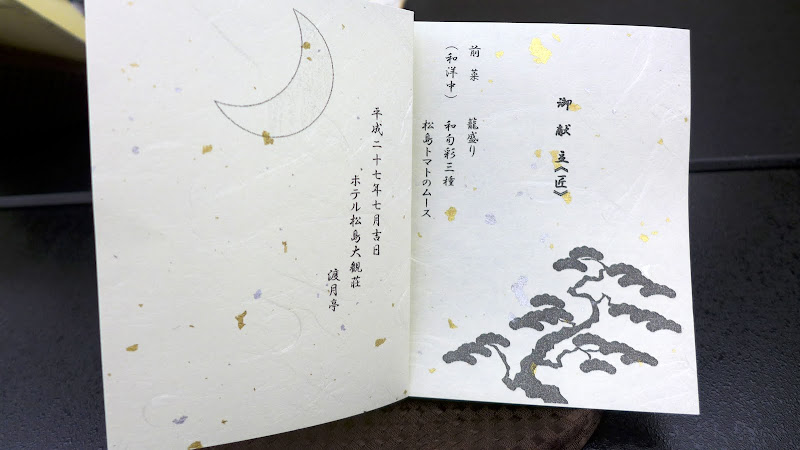 御献立《匠》
前菜 籠盛り
(和洋中) 和旬彩三種
松島トマトのムース
平成二十七年七月吉日
ホテル松島大観荘
渡月亭